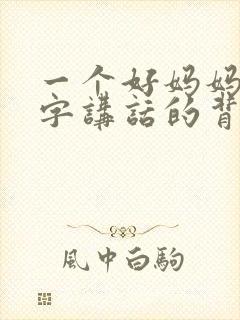 一个好妈妈
字講話的背
風中白駒